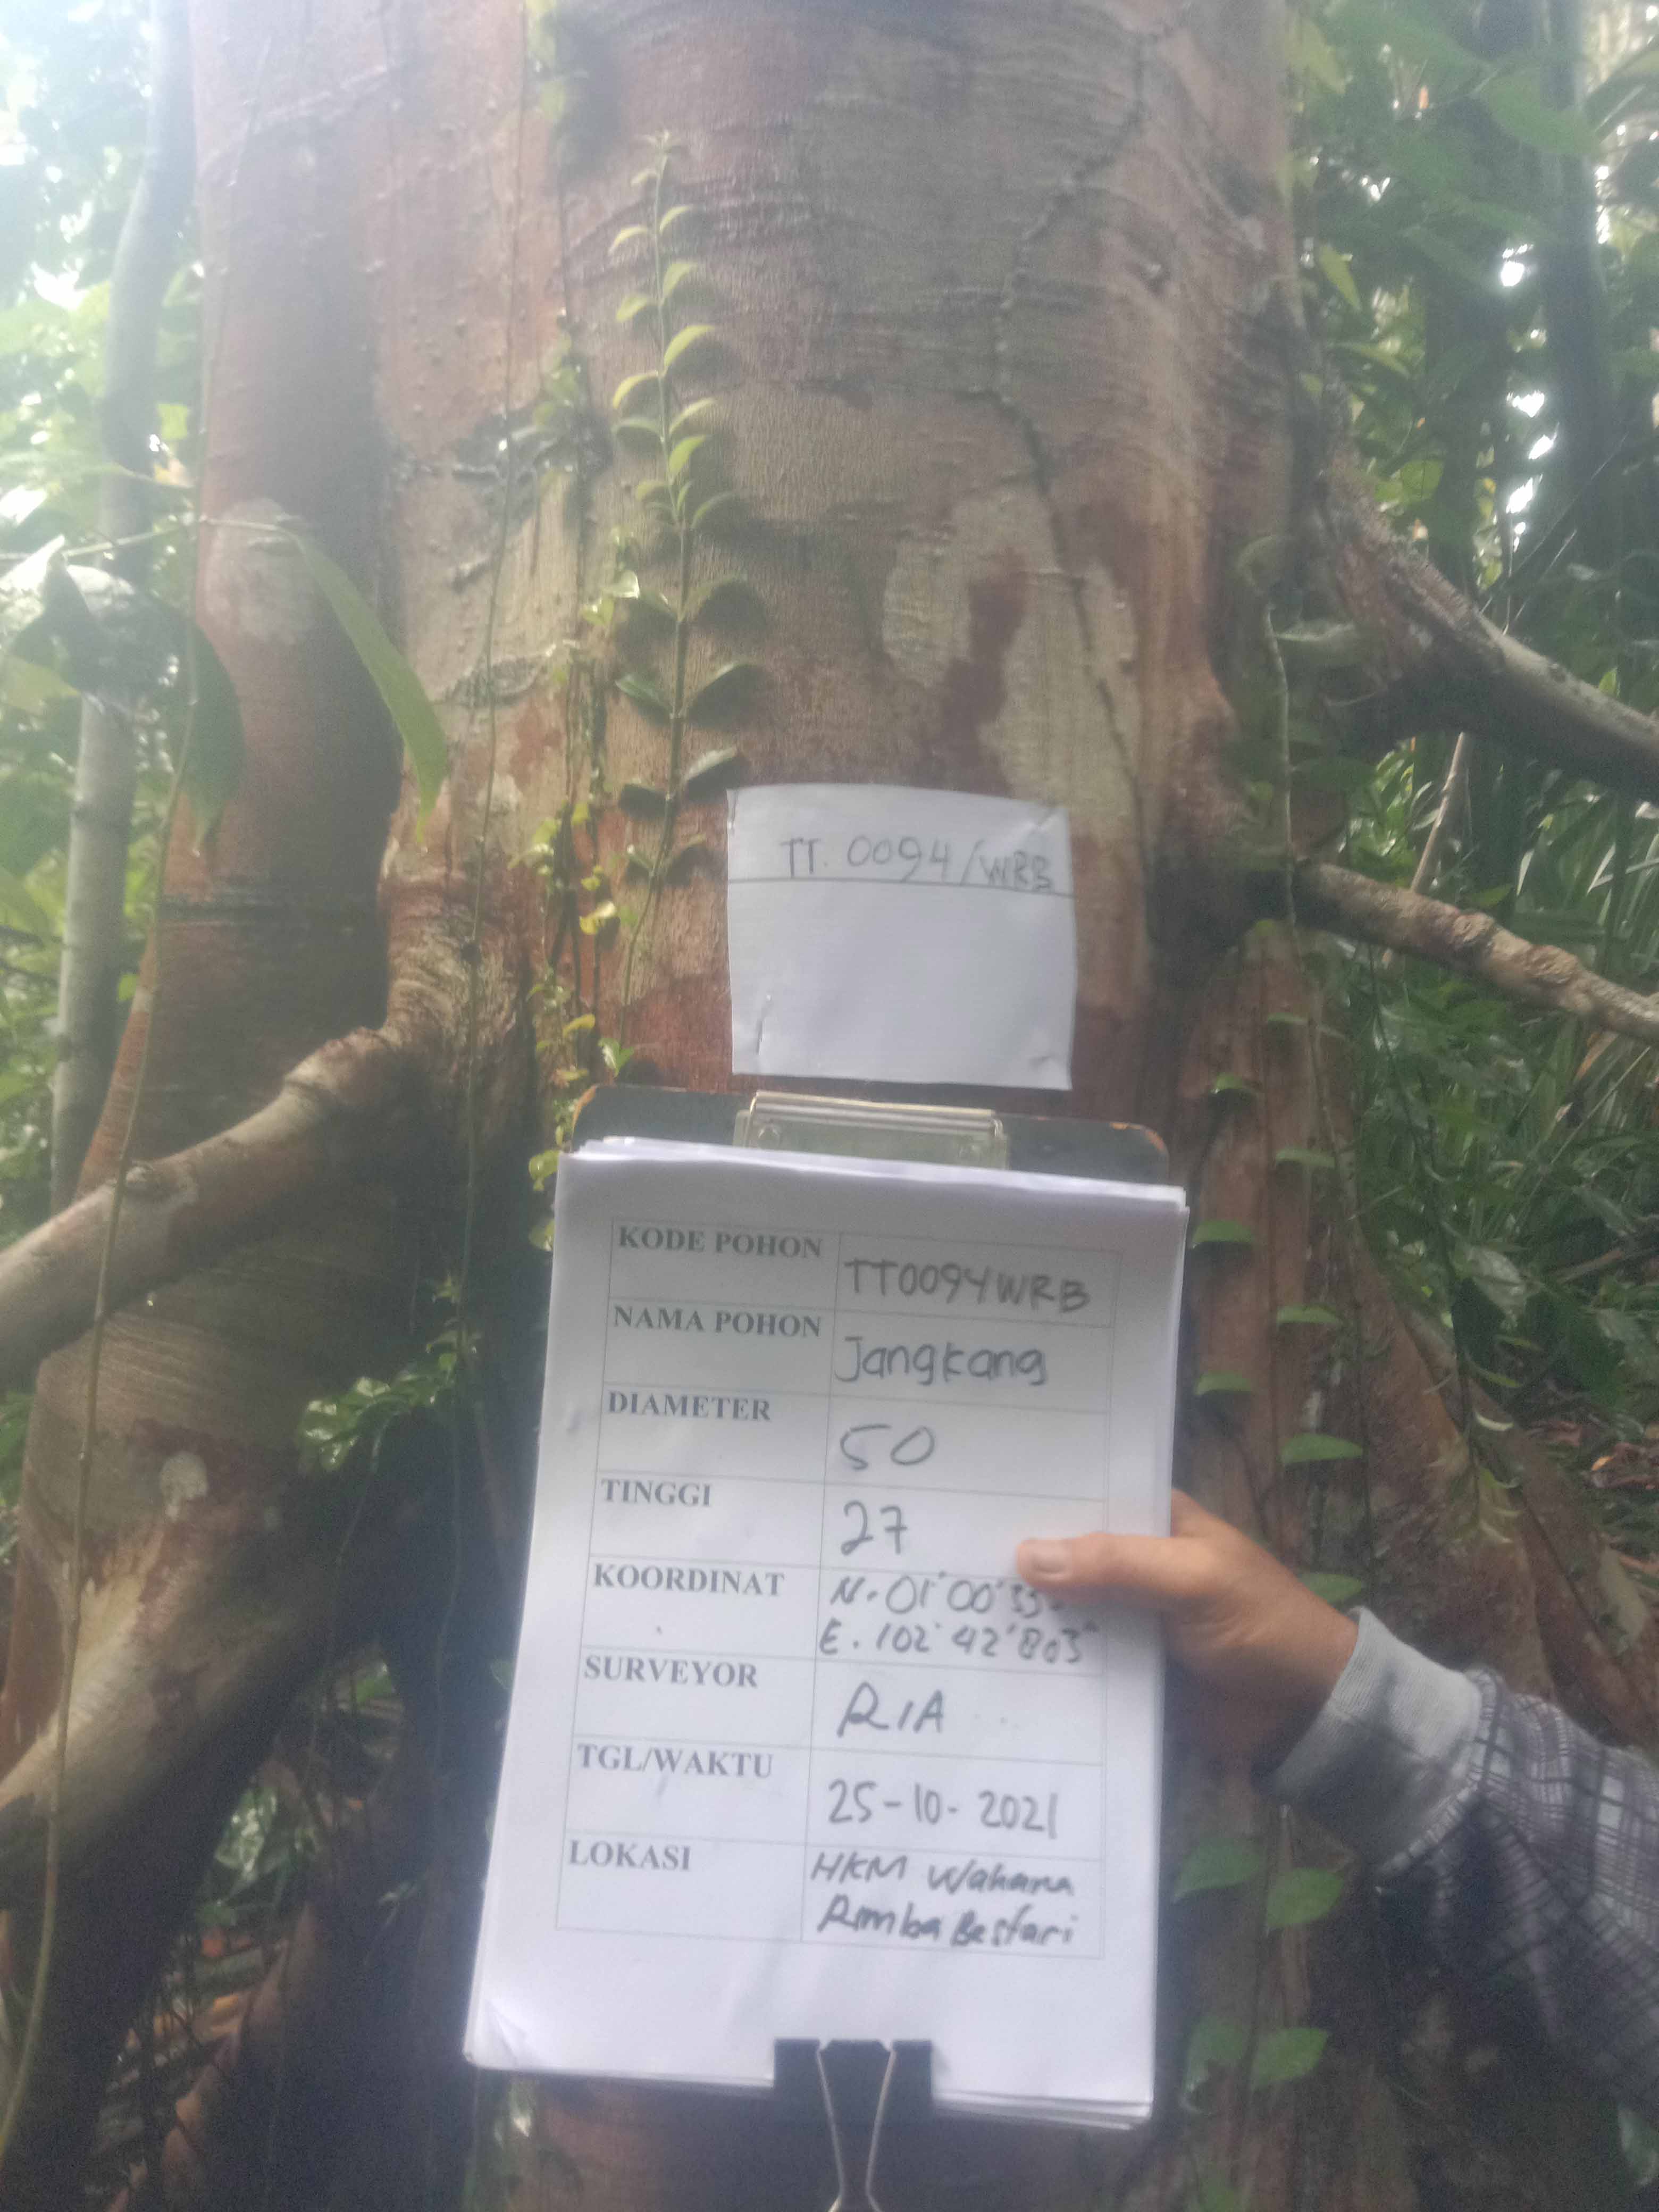 TT. 0094/WRB
KODE POHON TT0094WRB
NAMA POHON Jangkang
DIAMETER 50
TINGGI 27
KOORDINAT N. 01°00'
E. 102°42'803"
SURVEYOR RIA
TGL/WAKTU 25-10-2021
LOKASI HKM Wahana
Rimba Bestari